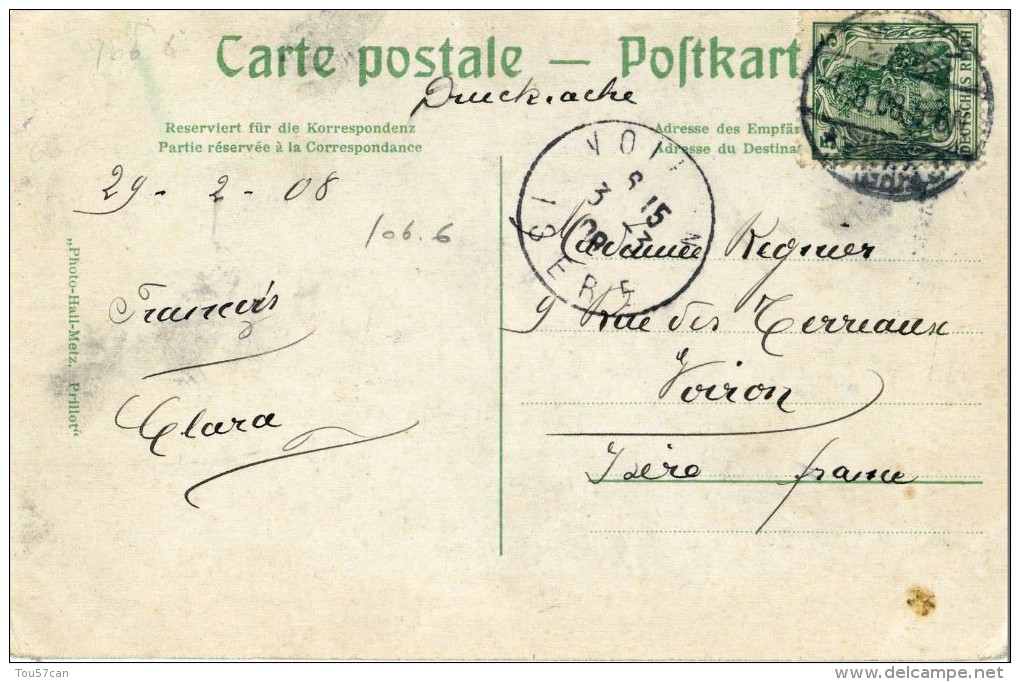 106.6
Carte postale — Postkar
Drucksache
Reserviert für die Korrespondenz
Partie réservée à la Correspondance
Adresse des Empfän
Adresse du Destina
5 5
DEUTSCHES REICH
29-2-08
106.6
VOI N
6 15
3 3
08
ISERE
Francis
Clara
Madame Regnier
9 Rue des Terreaux
Voiron
Isère france
„Photo-Hall-Metz. Prillot“
Tou57can
www.delcampe.net